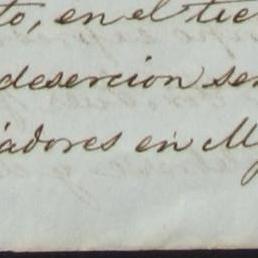 to, en el tie
desercion ser
iadores en My